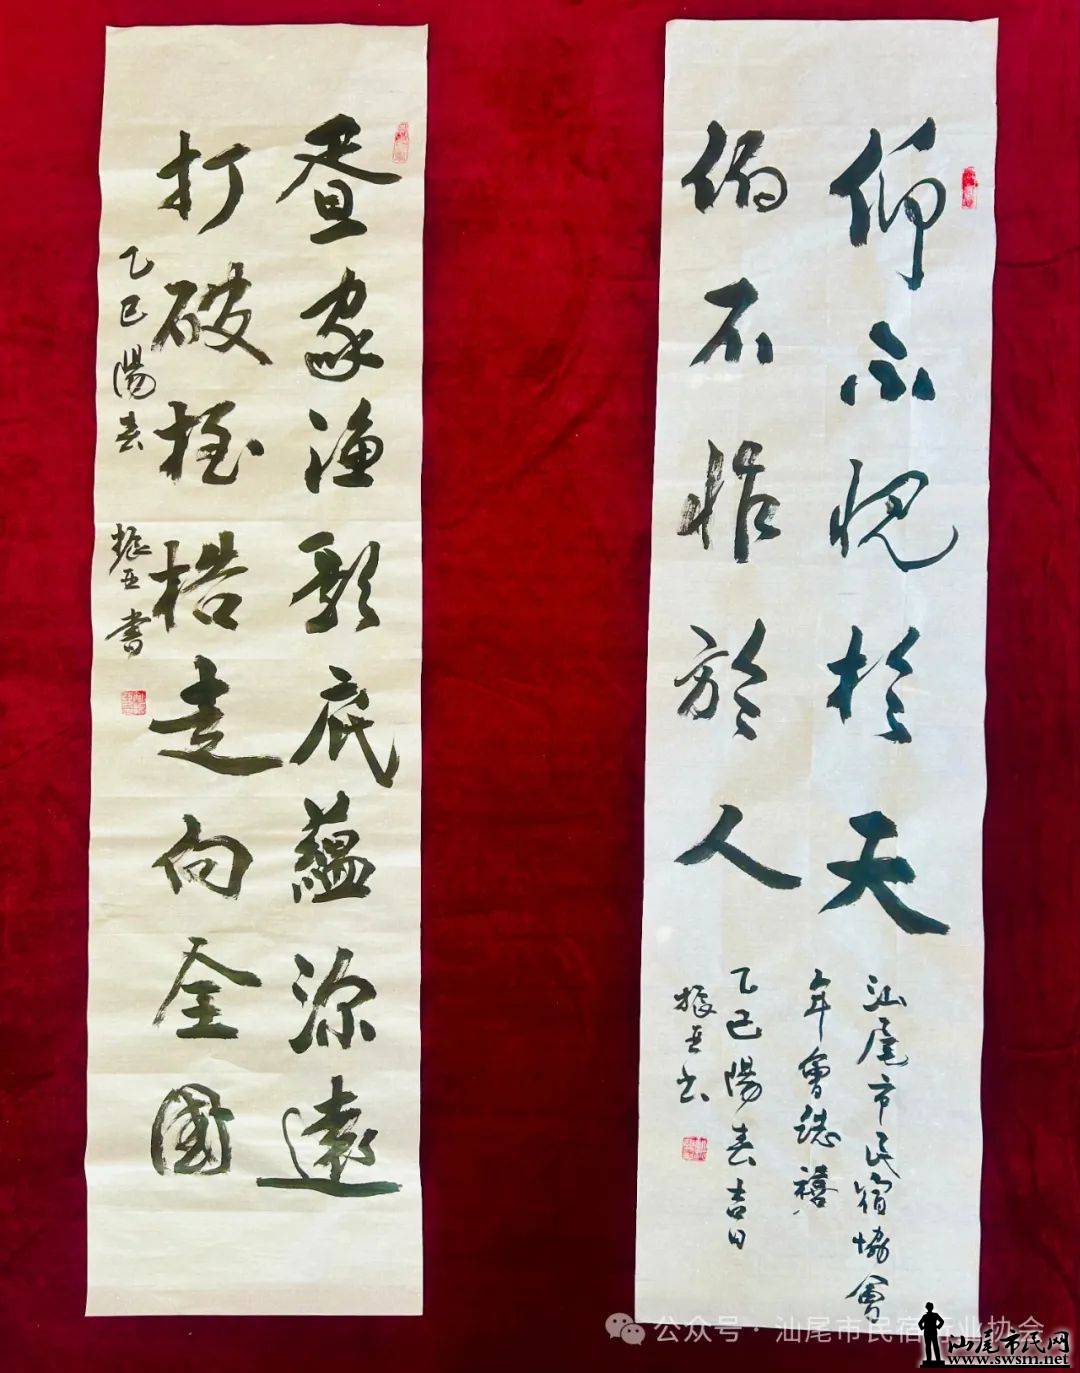 仰不愧於天
俯不怍於人
汕尾市民宿協會
年會誌禧
乙巳陽春吉日
振亞书
疍家渔歌底蘊源遠
打破桎梏走向全國
乙巳陽春 振亞書
公众号·汕尾市民宿行业协会
汕尾市民网
www.swsm.net